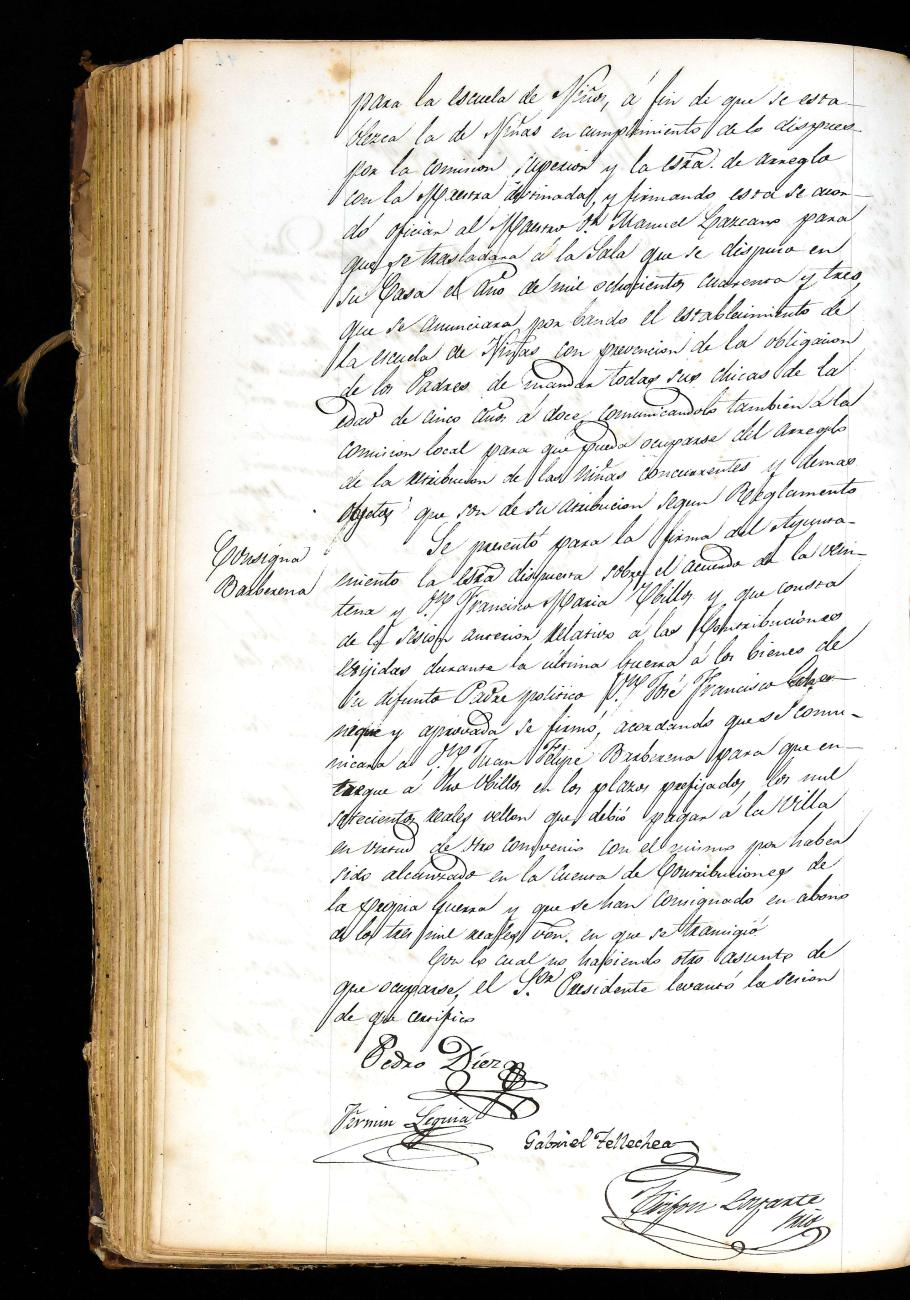 para la escuela de Niños, á fin de que se esta-
blezca la de Niñas en cumplimiento de lo dispues-
por la comision superior y la esƨra. de arreglo
con la Maestra destinada, y firmando esta se acor-
dó oficiar al Maestro Dn Manuel Lazcano para
que se trasladara á la Sala que se dispuso en
su Casa el Año de mil ochocientos cuarenta y tres,
que se anunciara por bando el establecimiento de
la escuela de Niñas con prevencion de la obligacion
de los Padres de mandar todas sus chicas de la
edad de cinco años á doce, comunicandolo tambien á la
comision local para que pueda ocuparse del arreglo
de la distribucion de las niñas concurrentes y demas
objetos que son de su atribucion segun Reglamento
Consigna
Barberena
Se presentó para la firma del Ayunta-
miento la esƨra dispuesta sobre el acuerdo de la vein-
tena y Dn Francisco Maria Ubillos y que consta
de la Sesion anterior relativo á las Contribuciones
exijidas durante la ultima Guerra á los bienes de
su difunto Padre politico Dn José Francisco
y aprovada se firmó, acordando que se comu-
nicara a Dn Juan Felipe Barberena para que en-
tregue á dho Ubillos en los plazos prefijados los mil
setecientos reales vellon que debió pagar á la Villa
en virtud de otro convenio con el mismo por haber
sido alcanzado en la cuenta de Contribuciones de
la propia Guerra y que se han consignado en abono
de los tres mil reales von. en que se transigió
Con lo cual no habiendo otro asunto de
que ocuparse, el Sor Presidente levantó la sesion
de que certifico
Pedro Diez
Fermin Leguia
Gabriel Tellechea